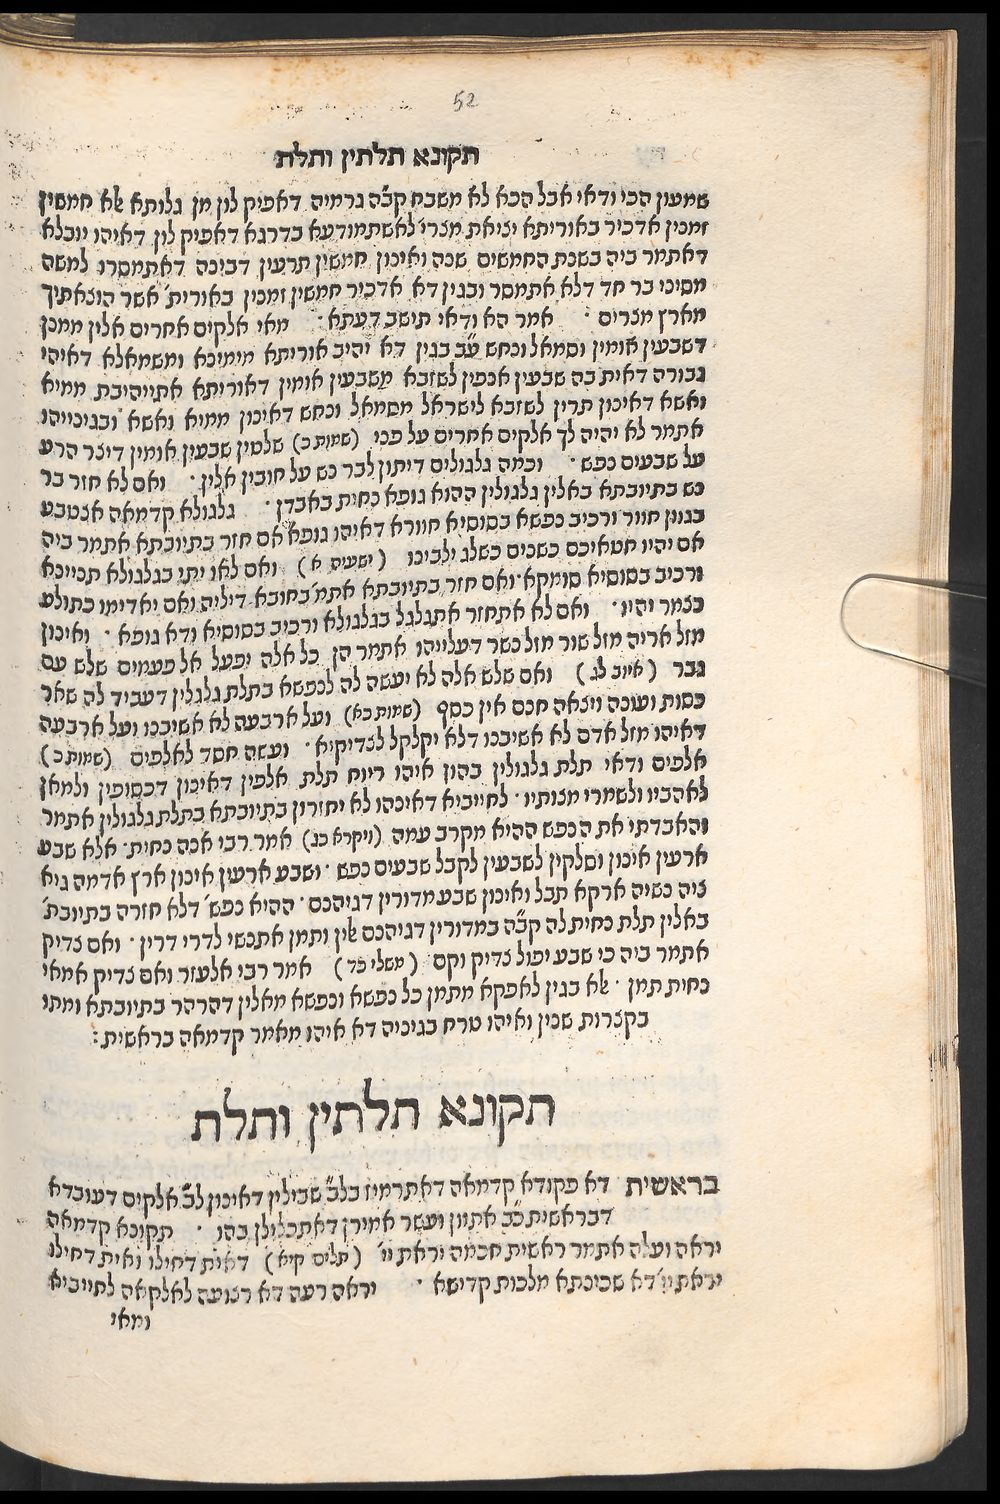 52
תקונא תלתין ותלת
שמעון הכי ודאי אבל הכא לא משבח קב״ה גרמיה דאפיק לון מן גלותא אלא חמשין
זמנין אדכיר באוריתא יציאת מצרי׳ לאשתמודעא בדרגא דאפיק לון דאיהו יובלא
דאתמר ביה בשנת החמשים שנה ואינון חמשין תרעין דבינה דאתמסרו למשה
מסיני בר חד דלא אתמסר ובגין דא אדכיר חמשין זמנין באורית׳ אשר הוצאתיך
מארץ מצרים · אמר הא ודאי תישב דעתא · מאי אלקים אחרים אלין ממנן
דשבעין אומין וסמאל ונחש ע״ב בגין דא יהיב אוריתא מימינא ומשמאלא דאיהי
גבורה דאית בה שבעין אנפין לשזבא משבעין אומין דאוריתא אתייהיבת ממיא
ואשא דאינון תרין לשזבא לישראל מסמאל ונחש דאינון ממיא ואשא ובגינייהו
אתמר לא יהיה לך אלקים אחרים על פני (שמות כ) שלטין שבעין אומין דיצר הרע
על שבעים נפש · וכמה גלגולים דיתון לבר נש על חובין אלין · ואם לא חזר בר
נש בתיובתא באלין גלגולין ההוא גופא נחית באבדן · גלגולא קדמאה אצטבע
בגוון חוור ורכיב נפשא בסוסיא חוורא דאיהו גופא אם חזר בתיובתא אתמר ביה
אם יהיו חטאיכם כשנים כשלג ילבינו (ישעיה א) ואם לאו יתי בגלגולא תניינא
ורכיב בסוסיא סומקא · ואם חזר בתיובתא אתמ׳ בחובא דיליה ואם יאדימו כתולע
כצמר יהיו · ואם לא אתחזר אתגלגל בגלגולא ורכיב בסוסיא ודא גופא · ואינון
מזל אריה מזל שור מזל נשר דעלייהו אתמר הן כל אלה יפעל אל פעמים שלש עם
גבר (איוב לג) ואם שלש אלה לא יעשה לה לנפשא בתלת גלגלין דעביד לה שאר
כסות ועונה ויצאה חנם אין כסף (שמות כא) ועל ארבעה לא אשיבנו ועל ארבעה
דאיהו מזל אדם לא אשיבנו דלא יקלקל לצדיקיא · ועשה חסד לאלפים (שמות כ)
אלפים ודאי תלת גלגולין בהון איהו ריוח תלת אלפין דאינון דכסופין ולמאן
לאהביו ולשמרי מצותיו · לחייביא דאינהו לא יחזירון בתיובתא בתלת גלגולין אתמר
והאבדתי את הנפש ההיא מקרב עמה (ויקרא כג) אמר רבי אנה נחית · אלא שבע
ארעין אינון וסלקין לשבעין לקבל שבעים נפש · ושבע ארעין אינון ארץ אדמה גיא
ציה נשיה ארקא תבל ואינון שבע מדורין דגיהנם · ההיא נפש׳ דלא חזרה בתיובת׳
באלין תלת נחית לה קב״ה במדורין דגיהנם אלין ותמן אתנשי לדרי דרין · ואם צדיק
אתמר ביה כי שבע יפול צדיק וקם (משלי כד) אמר רבי אלעזר ואם צדיק אמאי
נחית תמן · אלא בגין לאפקא מתמן כל נפשא ונפשא מאלין דהרהר בתיובתא ומתו
בקצרות שנין ואיהו טרח בגיניה דא איהו מאמר קדמאה בראשית :
תקונא תלתין ותלת
בראשית דא פקודא קדמאה דאתרמיז בל״ב שבילין דאינון ל״ב אלקים דעובדא
דבראשית כ״ב אתוון ועשר אמירן דאתכלילן בהו · תקונא קדמאה
יראה ועלה אתמר ראשית חכמה יראת יי׳ (תלים קיא) דאית דחילו ואית דחילו
יראת יי׳ דא שכינתא מלכות קדישא · יראה רעה דא רצועה לאלקאה לחייביא
ומאי